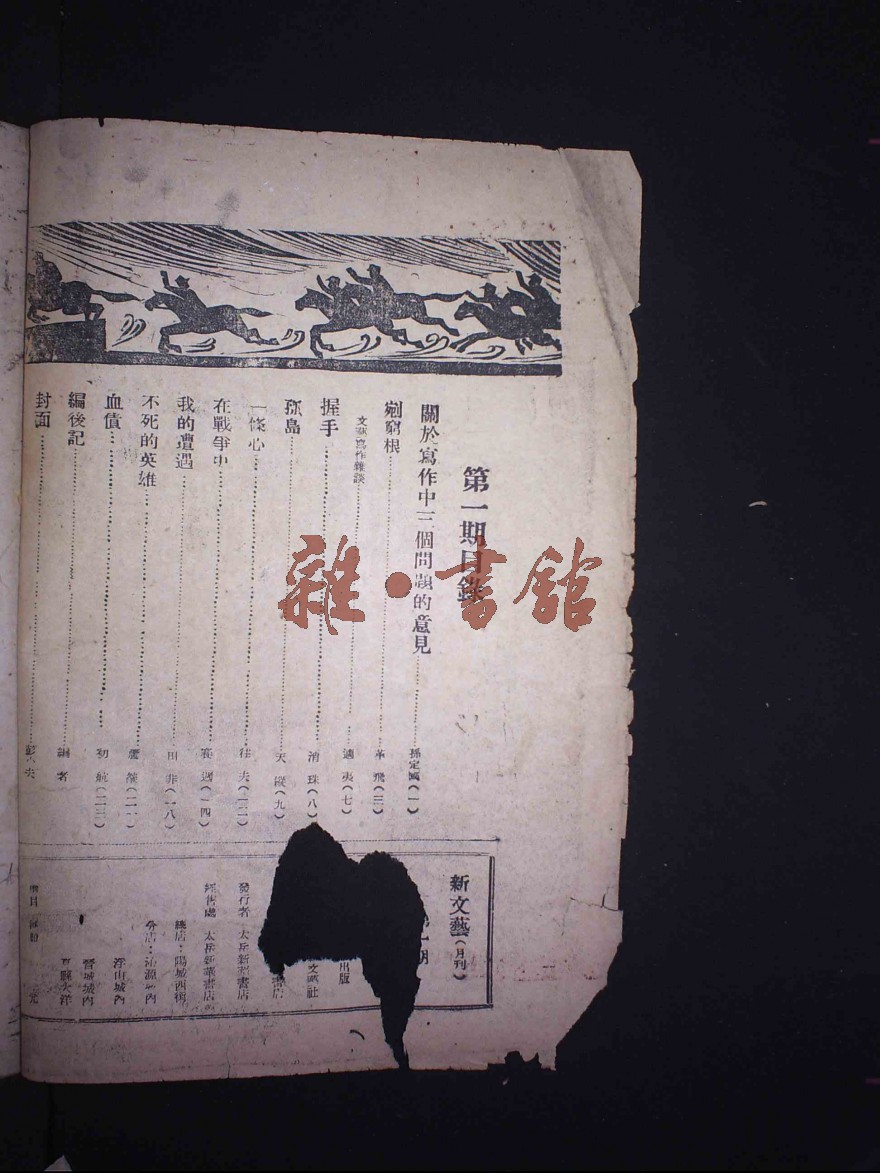 第一期目錄
關於寫作中三個問題的意見 孫定國(一)
剜窮根 革飛(三)
文藝寫作雜談 適夷(七)
握手 消珠(八)
孤島 天縱(九)
一條心 往夫(一二)
在戰爭中 賽週(一四)
我的遭遇 田非(一八)
不死的英雄 (二一)
血債 初航(二三)
編後記 編者
封面 彭夫
雜·書館
新文藝(月刊)
期
出版
文藝社
書店
發行者 太岳新華書店
經售處 太岳新華書店
總店:陽城西街
分店:沁源城內
浮山城內
晉城城內